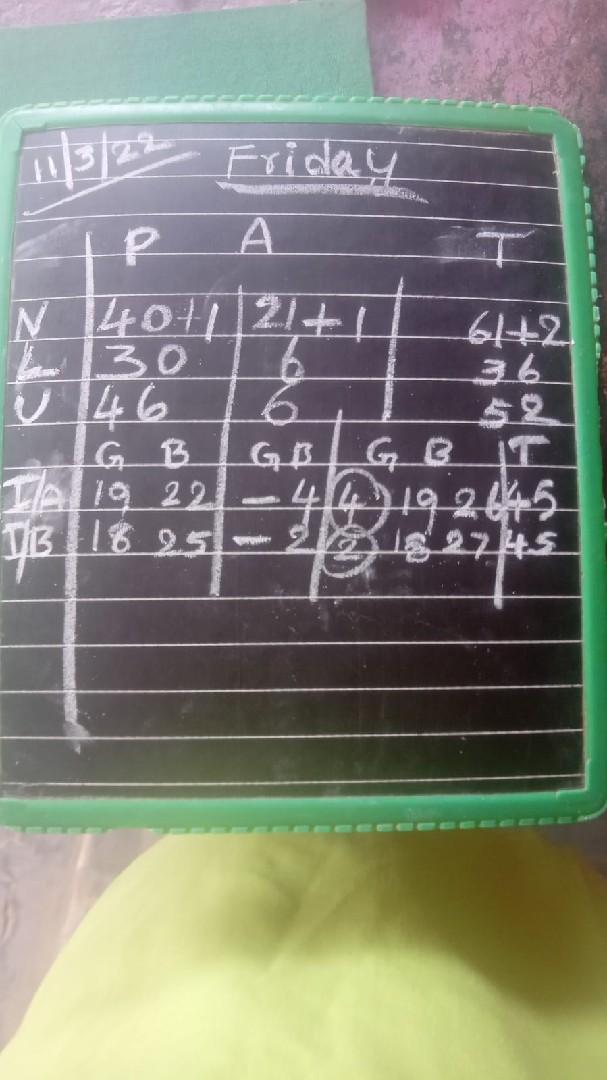 11/3/22 Friday
P A T
N 40+1 21+1 61+2
L 30 6 36
U 46 6 52
G B G B G B T
I/A 19 22 - 4 4 19 26 45
I/B 18 25 - 2 2 18 27 45